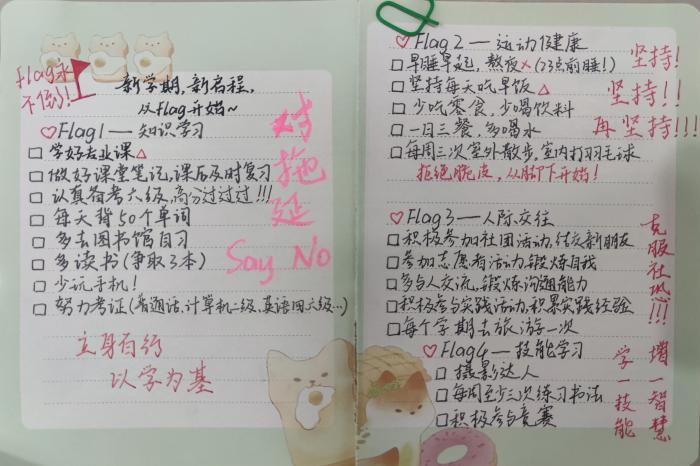 Flag永
不倒!
新学期,新启程,
从Flag开始~
♡Flag1—知识学习
□ 学好专业课△
□ 做好课堂笔记,课后及时复习
□ 认真备考六级,高分过过过!!!
□ 每天背50个单词
□ 多去图书馆自习
□ 多读书(争取3本)
□ 少玩手机!
□ 努力考证(普通话、计算机二级、英语四六级…)
对拖延
Say No
立身百行
以学为基
♡Flag2—运动健康
□早睡早起,熬夜×(23点前睡!)
□坚持每天吃早饭△
□少吃零食,少喝饮料
□一日三餐,多喝水
□每周三次室外散步,室内打羽毛球
拒绝脆皮,从脚下开始!
坚持!
坚持!!
再坚持!!!
♡Flag3—人际交往
□积极参加社团活动,结交新朋友
□参加志愿者活动,锻炼自我
□多与人交流,锻炼沟通能力
□积极参与实践活动,积累实践经验
□每个学期去旅游一次
克服社恐!!!
♡Flag4—技能学习
□摄影达人
□每周至少三次练习书法
□积极参与竞赛
学一技能
增一智慧